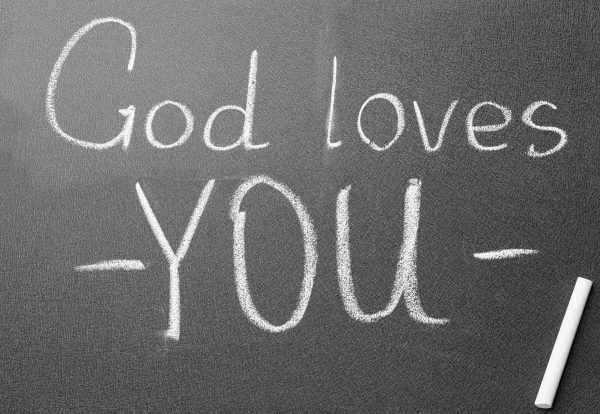 God loves
- YOU -